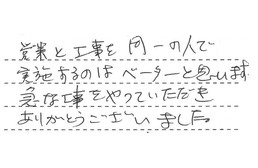 営業と工事を同一の人で
実施するのはベーターと思います
急な工事をやっていただき
ありがとうございました。